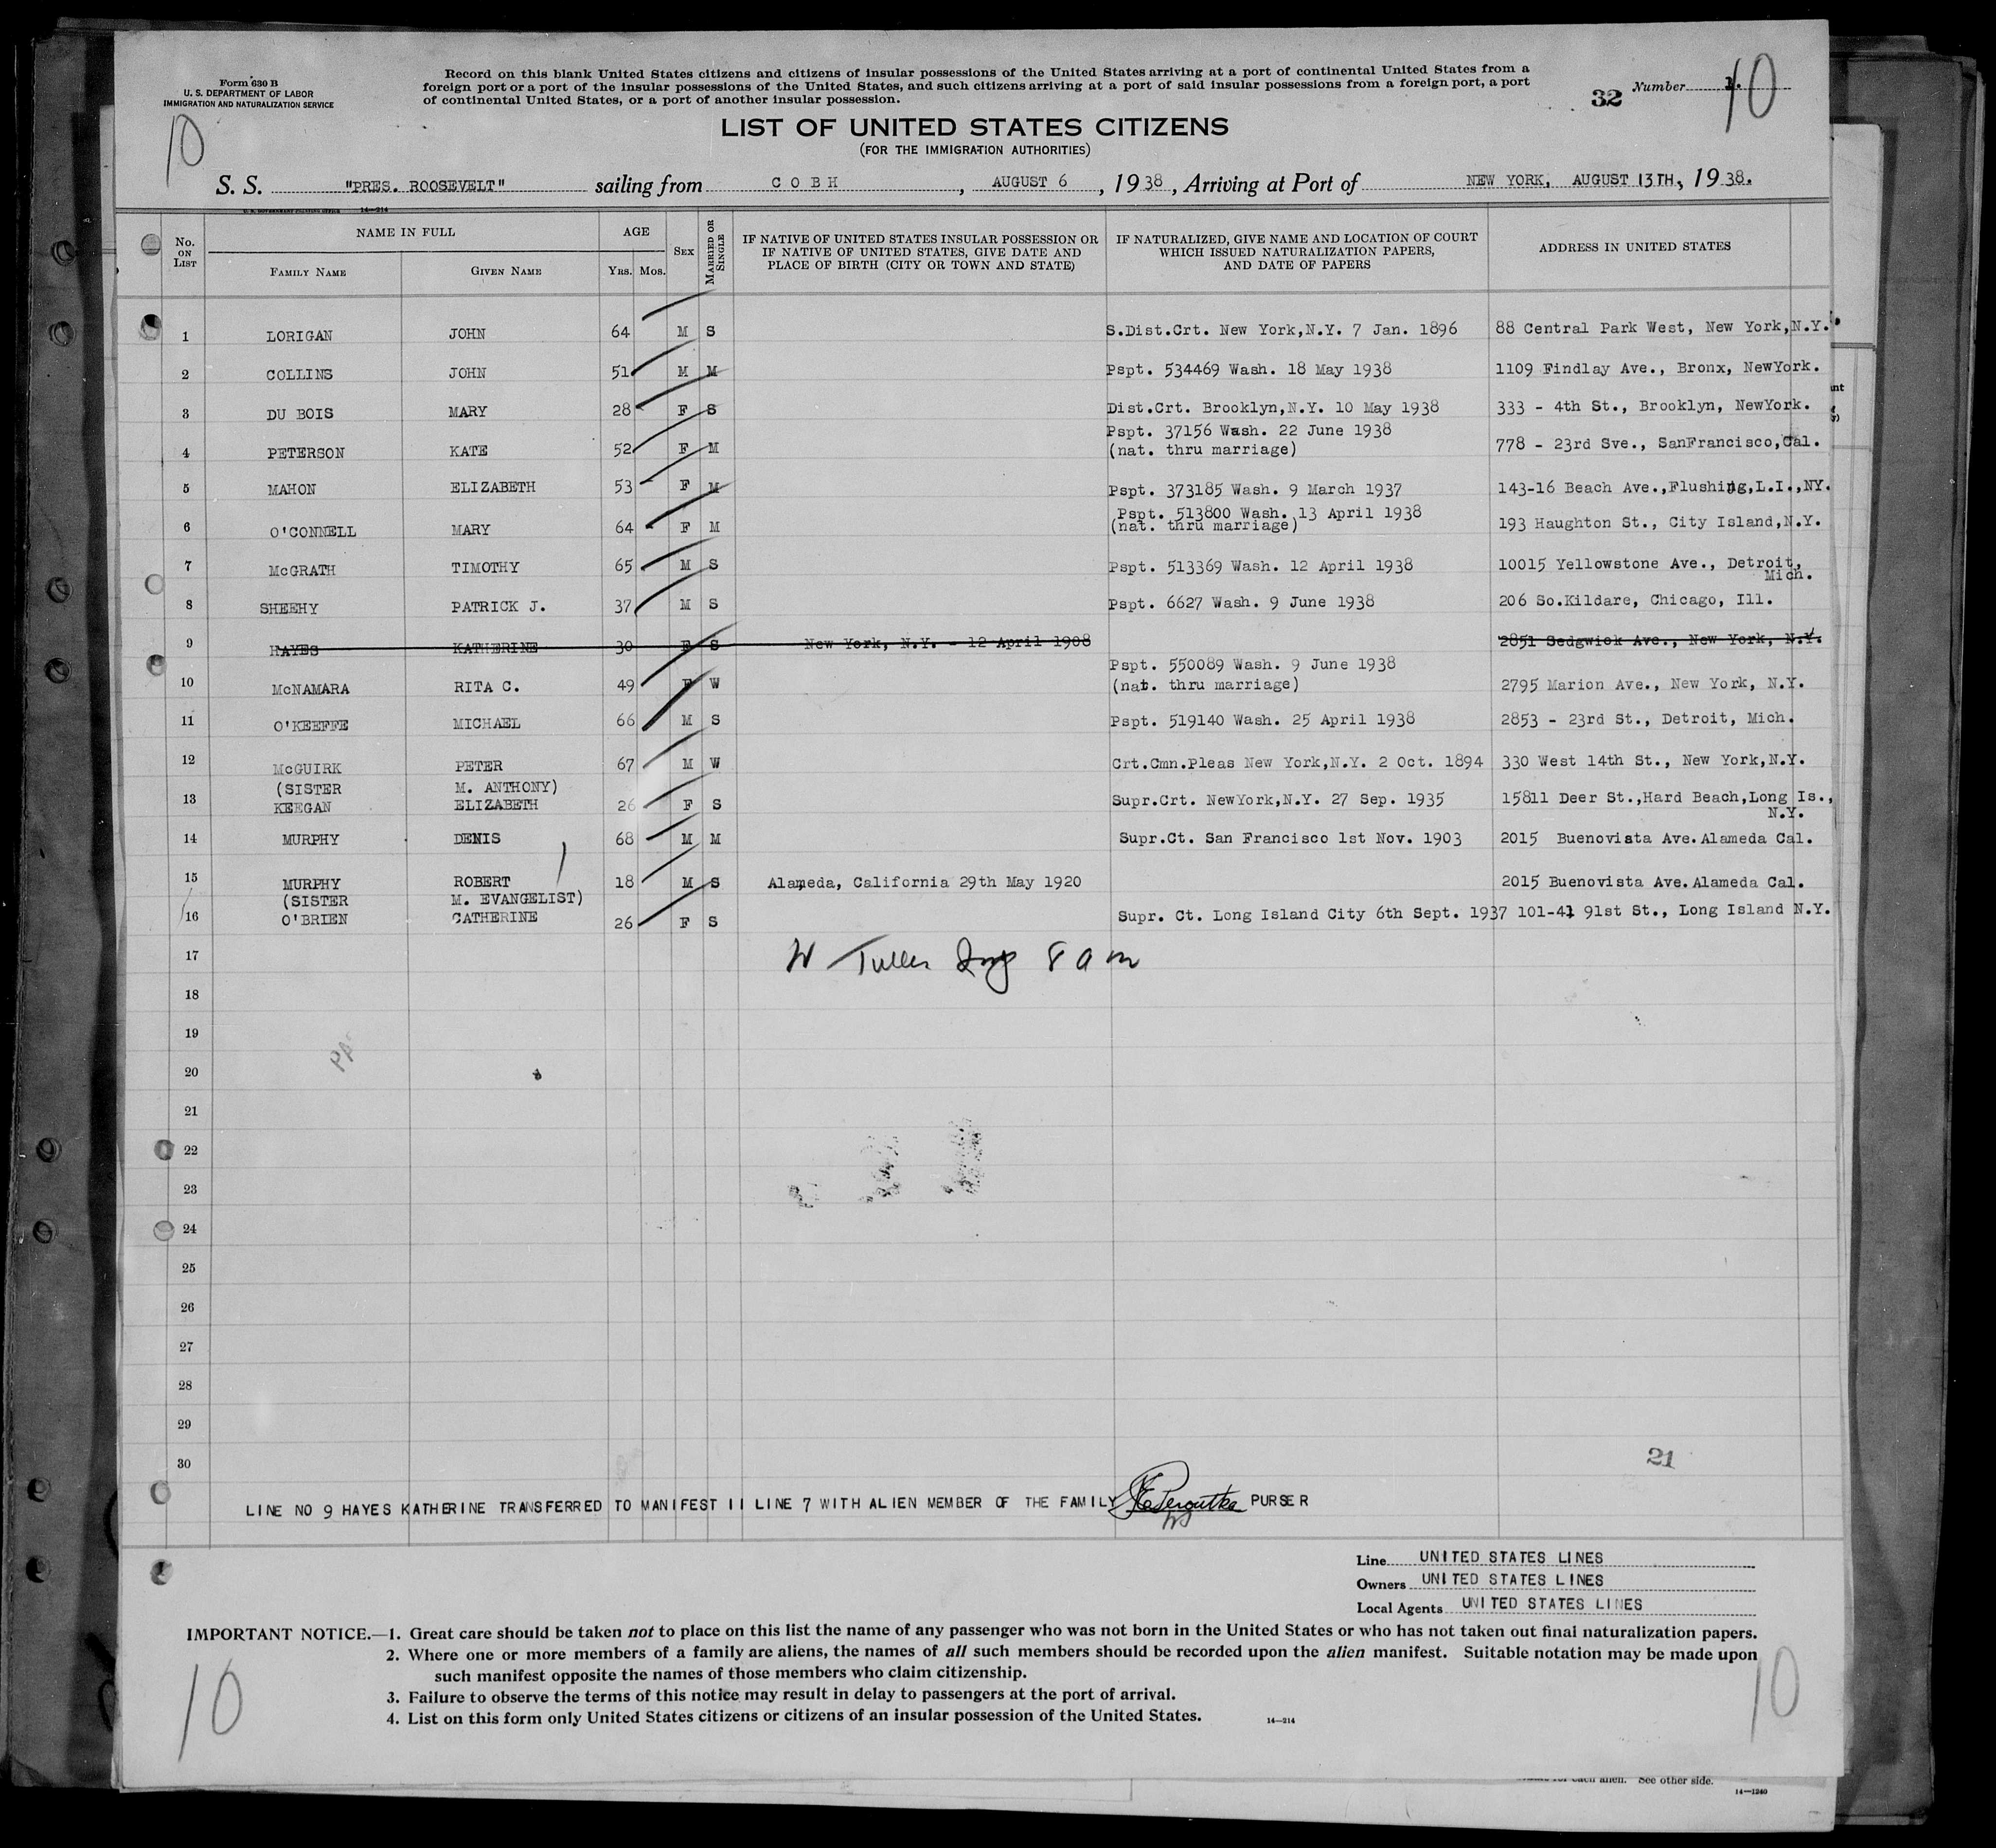 Form 630 B
U. S. DEPARTMENT OF LABOR
IMMIGRATION AND NATURALIZATION SERVICE
Record on this blank United States citizens and citizens of insular possessions of the United States arriving at a port of continental United States from a
foreign port or a port of the insular possessions of the United States, and such citizens arriving at a port of said insular possessions from a foreign port, a port
of continental United States, or a port of another insular possession.
32 Number 1. 10
10
LIST OF UNITED STATES CITIZENS
(FOR THE IMMIGRATION AUTHORITIES)
S. S. "PRES. ROOSEVELT" sailing from COBH, AUGUST 6, 1938, Arriving at Port of NEW YORK, AUGUST 13TH, 1938.
U. S. GOVERNMENT PRINTING OFFICE 14—214
No. ON LIST NAME IN FULL FAMILY NAME GIVEN NAME AGE YRS. MOS. SEX MARRIED OR SINGLE IF NATIVE OF UNITED STATES INSULAR POSSESSION OR IF NATIVE OF UNITED STATES, GIVE DATE AND PLACE OF BIRTH (CITY OR TOWN AND STATE) IF NATURALIZED, GIVE NAME AND LOCATION OF COURT WHICH ISSUED NATURALIZATION PAPERS, AND DATE OF PAPERS ADDRESS IN UNITED STATES
1 LORIGAN JOHN 64 M S S.Dist.Crt. New York,N.Y. 7 Jan. 1896 88 Central Park West, New York,N.Y.
2 COLLINS JOHN 51 M M Pspt. 534469 Wash. 18 May 1938 1109 Findlay Ave., Bronx, NewYork.
3 DU BOIS MARY 28 F S Dist.Crt. Brooklyn,N.Y. 10 May 1938 333 - 4th St., Brooklyn, NewYork.
Pspt. 37156 Wash. 22 June 1938
4 PETERSON KATE 52 F M (nat. thru marriage) 778 - 23rd Sve., SanFrancisco,Cal.
5 MAHON ELIZABETH 53 F M Pspt. 373185 Wash. 9 March 1937 143-16 Beach Ave.,Flushing,L.I.,NY.
Pspt. 513800 Wash. 13 April 1938
6 O'CONNELL MARY 64 F M (nat. thru marriage) 193 Haughton St., City Island,N.Y.
7 McGRATH TIMOTHY 65 M S Pspt. 513369 Wash. 12 April 1938 10015 Yellowstone Ave., Detroit,
Mich.
8 SHEEHY PATRICK J. 37 M S Pspt. 6627 Wash. 9 June 1938 206 So.Kildare, Chicago, Ill.
9 HAYES KATHERINE 30 F S New York, N.Y. - 12 April 1908 2851 Sedgwick Ave., New York, N.Y.
Pspt. 550089 Wash. 9 June 1938
10 McNAMARA RITA C. 49 F W (nat. thru marriage) 2795 Marion Ave., New York, N.Y.
11 O'KEEFFE MICHAEL 66 M S Pspt. 519140 Wash. 25 April 1938 2853 - 23rd St., Detroit, Mich.
12 McGUIRK PETER 67 M W Crt.Cmn.Pleas New York,N.Y. 2 Oct. 1894 330 West 14th St., New York,N.Y.
(SISTER M. ANTHONY)
13 KEEGAN ELIZABETH 26 F S Supr.Crt. NewYork,N.Y. 27 Sep. 1935 15811 Deer St.,Hard Beach,Long Is.,
N.Y.
14 MURPHY DENIS 68 M M Supr.Ct. San Francisco 1st Nov. 1903 2015 Buenovista Ave.Alameda Cal.
15 MURPHY ROBERT 18 M S Alameda, California 29th May 1920 2015 Buenovista Ave.Alameda Cal.
(SISTER M. EVANGELIST)
16 O'BRIEN CATHERINE 26 F S Supr. Ct. Long Island City 6th Sept. 1937 101-41 91st St., Long Island N.Y.
17 8 am
18
19
20
21
22
23
24
25
26
27
28
29
30
21
LINE NO 9 HAYES KATHERINE TRANSFERRED TO MANIFEST 11 LINE 7 WITH ALIEN MEMBER OF THE FAMILY PURSER
Line UNITED STATES LINES
Owners UNITED STATES LINES
Local Agents UNITED STATES LINES
IMPORTANT NOTICE.—1. Great care should be taken not to place on this list the name of any passenger who was not born in the United States or who has not taken out final naturalization papers.
2. Where one or more members of a family are aliens, the names of all such members should be recorded upon the alien manifest. Suitable notation may be made upon
such manifest opposite the names of those members who claim citizenship.
3. Failure to observe the terms of this notice may result in delay to passengers at the port of arrival.
4. List on this form only United States citizens or citizens of an insular possession of the United States.
14—214
10 10
each alien. See other side.
14—1240